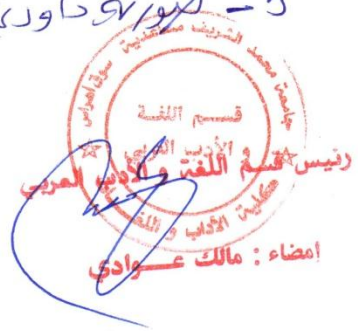 جامعة محمد الشريف مساعدية سوق أهراس
قسم اللغة
و الأدب العربي
كلية الآداب و اللغات
رئيس قسم اللغة و الأدب العربي
إمضاء : مالك عـــوادي